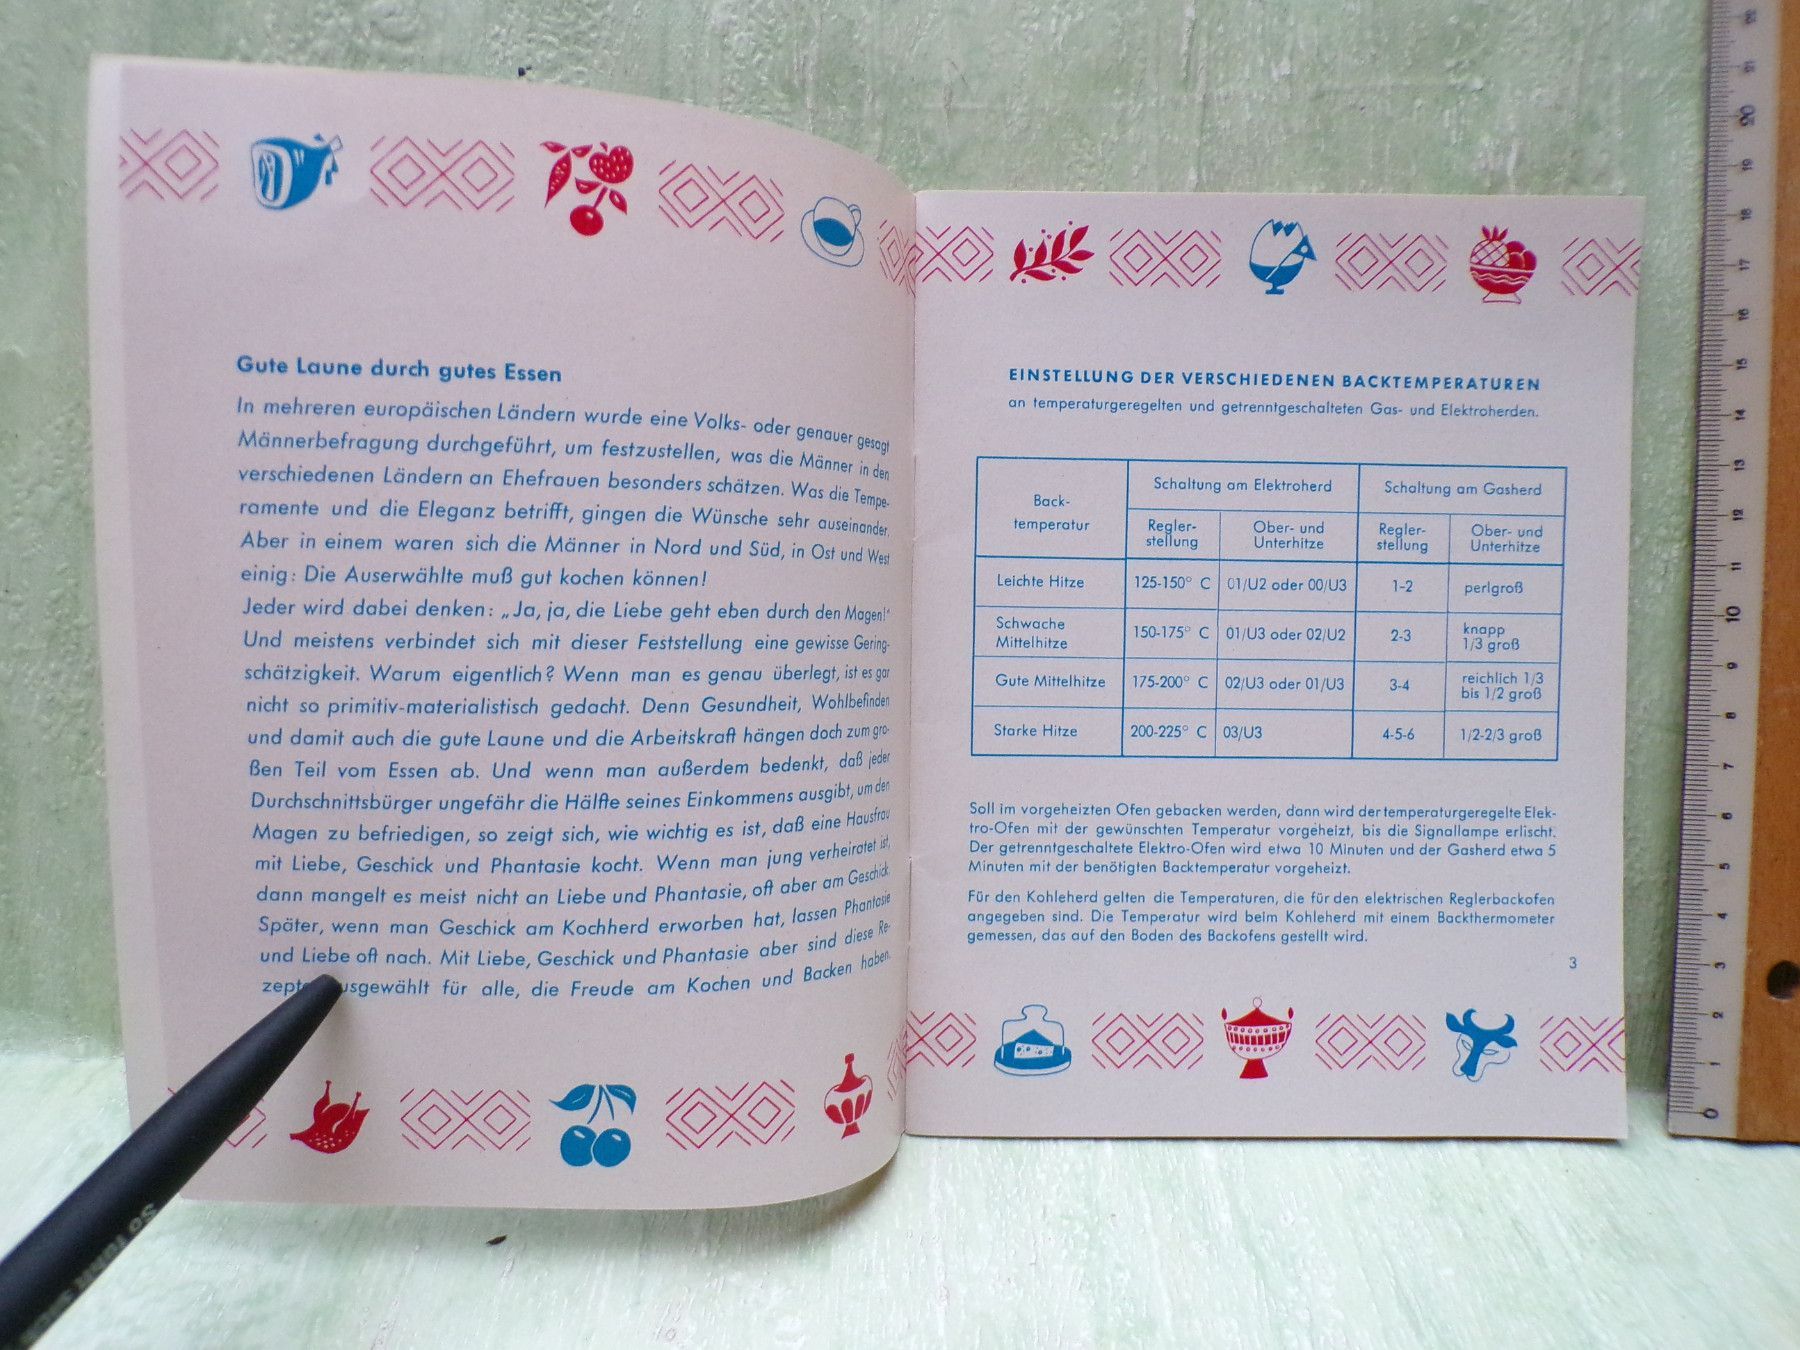 Gute Laune durch gutes Essen
In mehreren europäischen Ländern wurde eine Volks- oder genauer gesagt
Männerbefragung durchgeführt, um festzustellen, was die Männer in den
verschiedenen Ländern an Ehefrauen besonders schätzen. Was die Tempe-
ramente und die Eleganz betrifft, gingen die Wünsche sehr auseinander.
Aber in einem waren sich die Männer in Nord und Süd, in Ost und West
einig: Die Auserwählte muß gut kochen können!
Jeder wird dabei denken: „Ja, ja, die Liebe geht eben durch den Magen!“
Und meistens verbindet sich mit dieser Feststellung eine gewisse Gering-
schätzigkeit. Warum eigentlich? Wenn man es genau überlegt, ist es gar
nicht so primitiv-materialistisch gedacht. Denn Gesundheit, Wohlbefinden
und damit auch die gute Laune und die Arbeitskraft hängen doch zum gro-
ßen Teil vom Essen ab. Und wenn man außerdem bedenkt, daß jeder
Durchschnittsbürger ungefähr die Hälfte seines Einkommens ausgibt, um den
Magen zu befriedigen, so zeigt sich, wie wichtig es ist, daß eine Hausfrau
mit Liebe, Geschick und Phantasie kocht. Wenn man jung verheiratet ist,
dann mangelt es meist nicht an Liebe und Phantasie, oft aber am Geschick.
Später, wenn man Geschick am Kochherd erworben hat, lassen Phantasie
und Liebe oft nach. Mit Liebe, Geschick und Phantasie aber sind diese Re-
für alle, die Freude am Kochen und Backen haben.
EINSTELLUNG DER VERSCHIEDENEN BACKTEMPERATUREN
an temperaturgeregelten und getrenntgeschalteten Gas- und Elektroherden.
Back-
temperatur
Schaltung am Elektroherd
Schaltung am Gasherd
Regler-
stellung
Ober- und
Unterhitze
Regler-
stellung
Ober- und
Unterhitze
Leichte Hitze 125-150° C 01/U2 oder 00/U3 1-2 perlgroß
Schwache
Mittelhitze 150-175° C 01/U3 oder 02/U2 2-3 knapp
1/3 groß
Gute Mittelhitze 175-200° C 02/U3 oder 01/U3 3-4 reichlich 1/3
bis 1/2 groß
Starke Hitze 200-225° C 03/U3 4-5-6 1/2-2/3 groß
Soll im vorgeheizten Ofen gebacken werden, dann wird der temperaturgeregelte Elek-
tro-Ofen mit der gewünschten Temperatur vorgeheizt, bis die Signallampe erlischt.
Der getrenntgeschaltete Elektro-Ofen wird etwa 10 Minuten und der Gasherd etwa 5
Minuten mit der benötigten Backtemperatur vorgeheizt.
Für den Kohleherd gelten die Temperaturen, die für den elektrischen Reglerbackofen
angegeben sind. Die Temperatur wird beim Kohleherd mit einem Backthermometer
gemessen, das auf den Boden des Backofens gestellt wird.
3
22
21
20
19
18
17
16
15
14
13
12
11
10
9
8
7
6
5
4
3
2
1
0